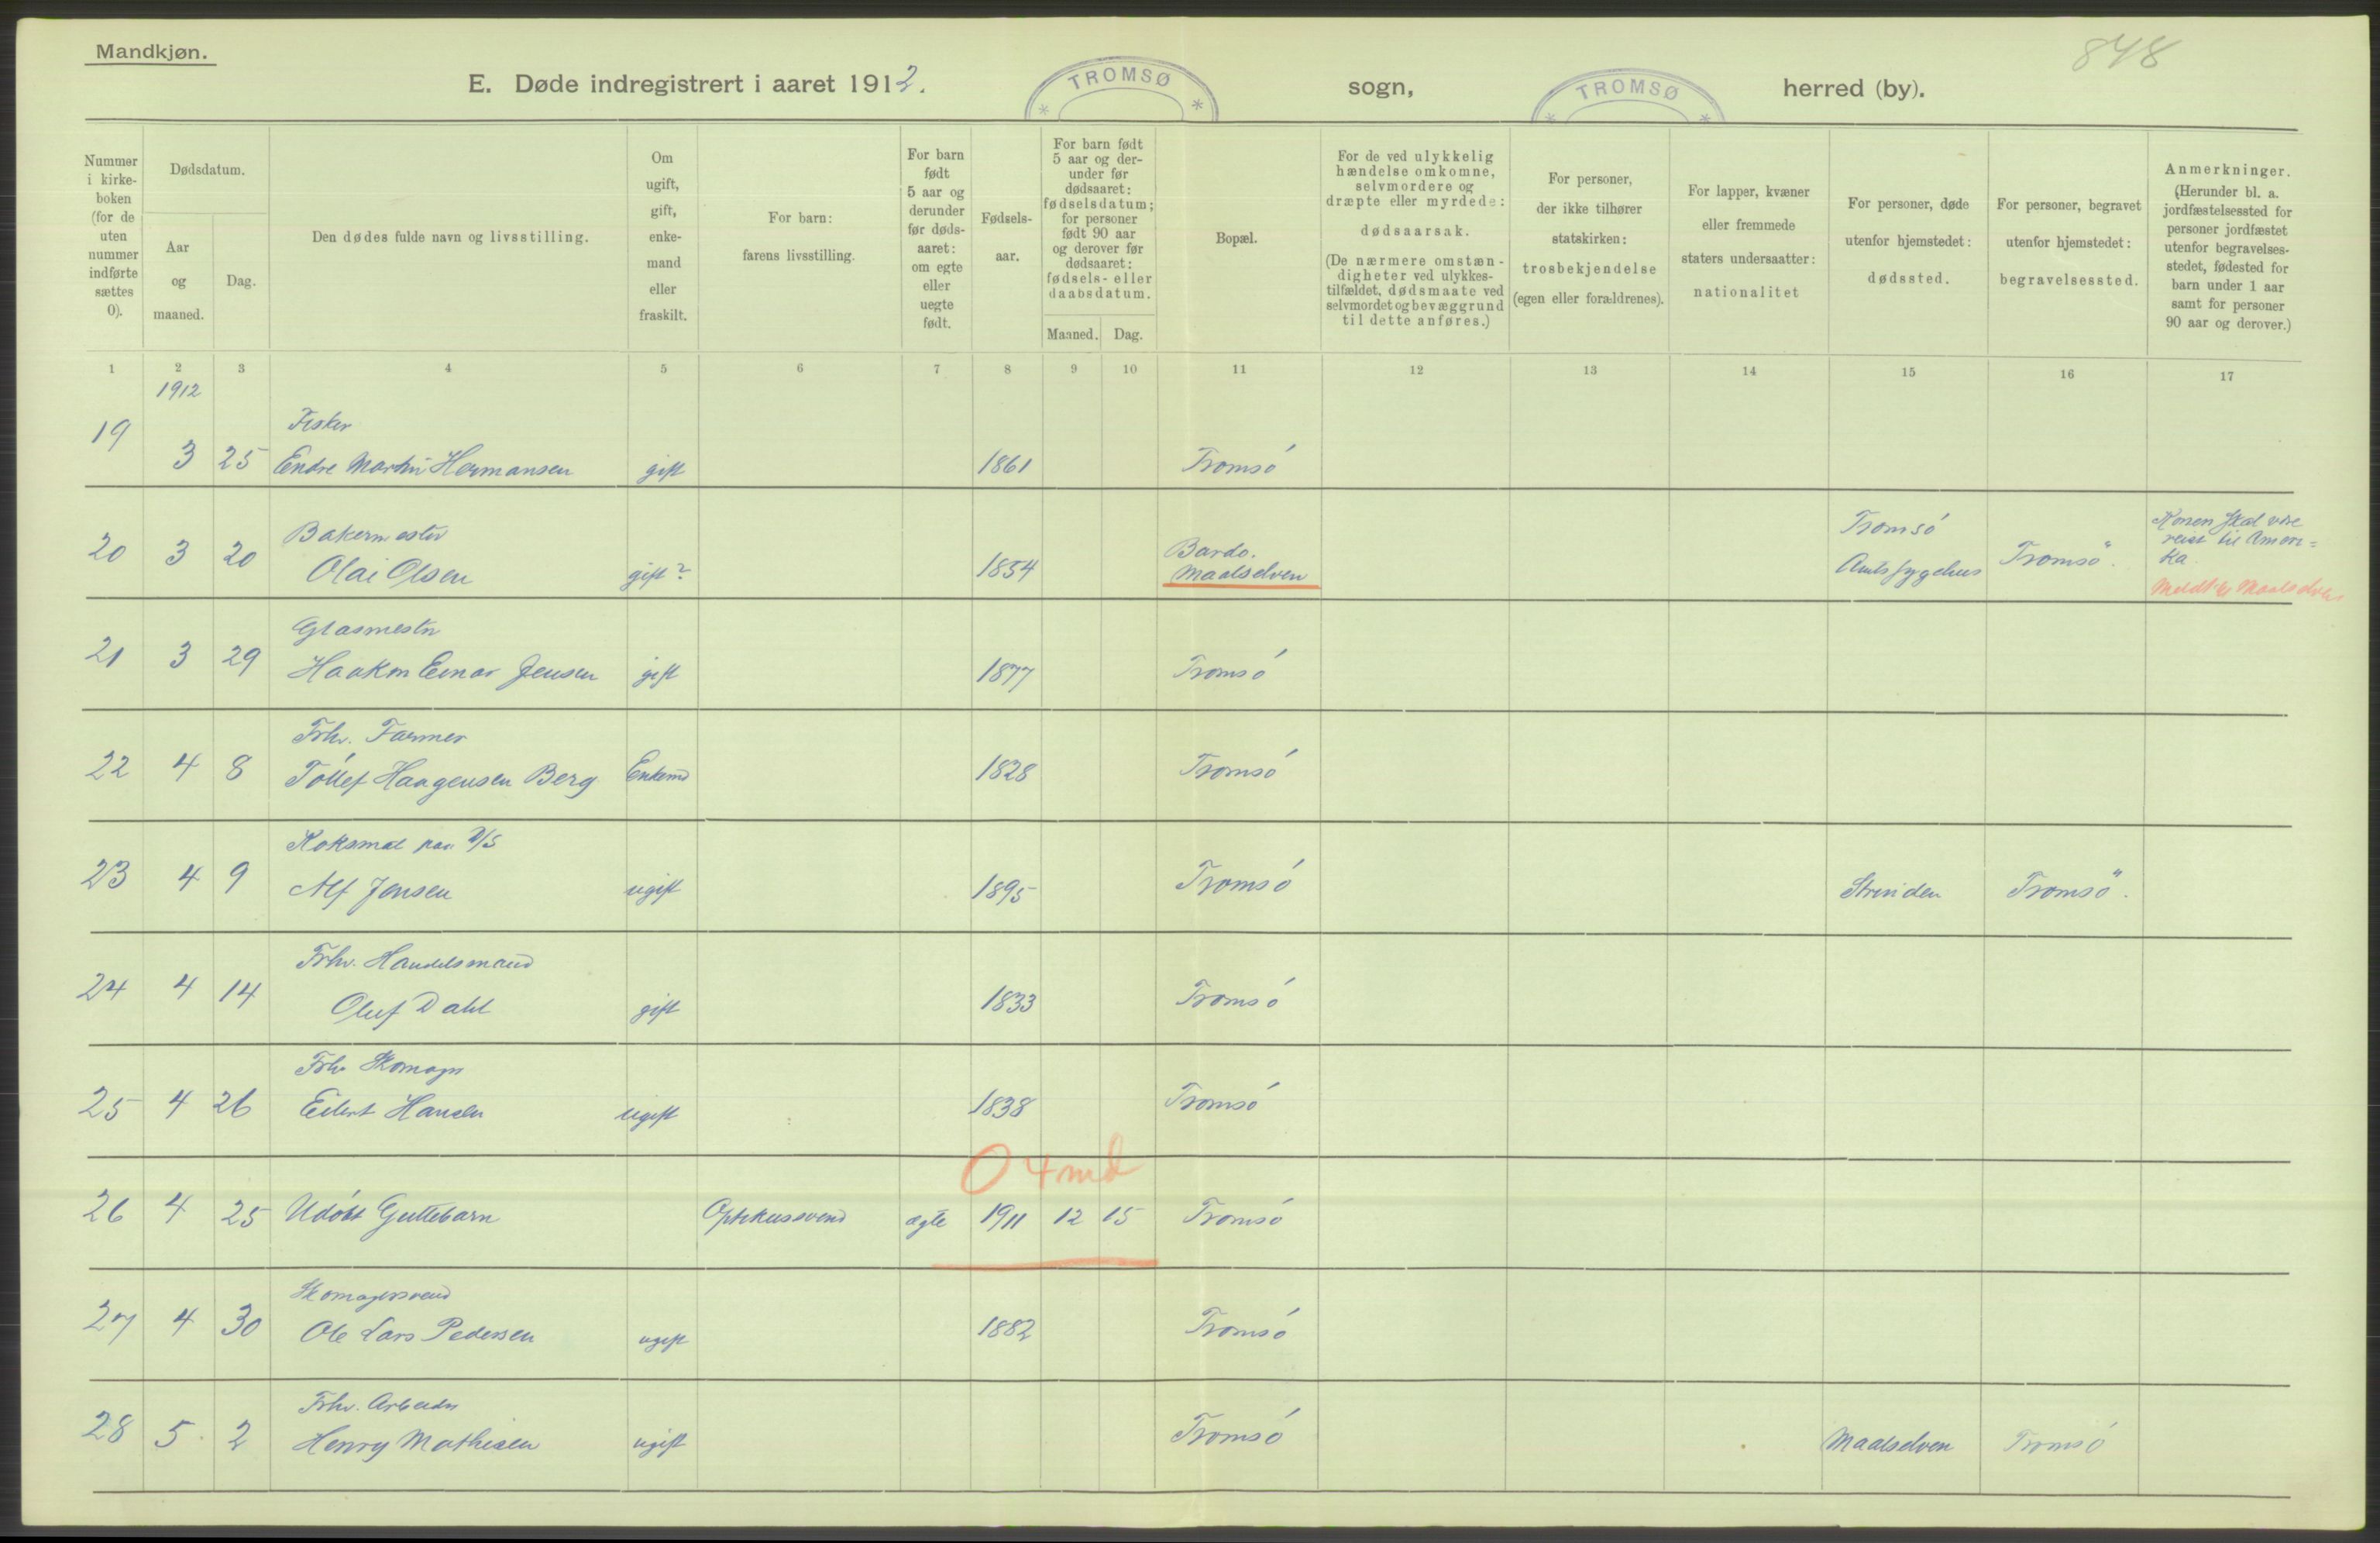 Mandkjøn.
848
E. Døde indregistrert i aaret 1912.
TROMSØ
sogn,
TROMSØ
herred (by).
Nummer i kirke- boken (for de uten nummer indførte sættes 0).
Dødsdatum.
Aar og maaned.
Dag.
Den dødes fulde navn og livsstilling.
Om ugift, gift, enke- mand eller fraskilt.
For barn: farens livsstilling.
For barn født 5 aar og derunder før døds- aaret: om egte eller uegte født.
Fødsels- aar.
For barn født 5 aar og der- under før dødsaaret: fødselsdatum; for personer født 90 aar og derover før dødsaaret: fødsels- eller daabsdatum.
Maaned.
Dag.
Bopæl.
For de ved ulykkelig hændelse omkomne, selvmordere og dræpte eller myrdede: dødsaarsak. (De nærmere omstæn- digheter ved ulykkes- tilfældet, dødsmaate ved selvmordet og bevæggrund til dette anføres.)
For personer, der ikke tilhører statskirken: trosbekjendelse (egen eller forældrenes).
For lapper, kvæner eller fremmede staters undersaatter: nationalitet
For personer, døde utenfor hjemstedet: dødssted.
For personer, begravet utenfor hjemstedet: begravelsessted.
Anmerkninger. (Herunder bl. a. jordfæstelsessted for personer jordfæstet utenfor begravelses- stedet, fødested for barn under 1 aar samt for personer 90 aar og derover.)
1 2 3 4 5 6 7 8 9 10 11 12 13 14 15 16 17
1912
Fisker
19 3 25 Endre Martin Hermansen gift 1861 Tromsó
Bakermester Bardo. Tromsó Konen skal være
20 3 20 Olai Olsen gift? 1854 Maalselven Amtssygehus Tromsö. reist til Ameri=
ka
Meldt til Maalselven
Glasmester
21 3 29 Haakon Einar Jensen gift 1877 Tromsó
Frhv. Farmer
22 4 8 Tóllef Haagensen Berg Enkemd 1828 Tromsó
Koksmat paa D/S
23 4 9 Alf Jensen ugift 1895 Tromsó Strinden Tromsö.
Frhv. Handelsmand
24 4 14 Oluf Dahl gift 1833 Tromsó
Frhv Skomager
25 4 26 Eilert Hansen ugift 1838 Tromsó
0 4 md
26 4 25 Udóbt Guttebarn Optikussvend ægte 1911 12 15 Tromsó
Skomagersvend
27 4 30 Ole Lars Pedersen ugift 1882 Tromsó
Frhv. Arbeider
28 5 2 Henry Mathisen ugift Tromsó Maalselven Tromsó